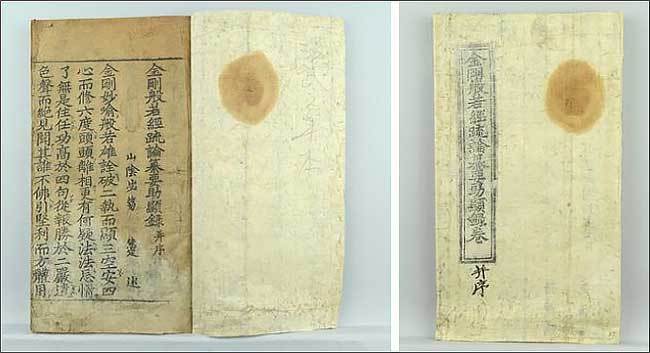 金剛般若經疏論纂要助顯錄 并序
山陰 述
金剛妙慧般若雄詮破二執而顯三空安四
心而修六度頭頭離相更有何疑法法忘情
了無是住任功高於四句從報勝於二嚴遠
色聲而絕見聞其誰不佛引堅利而方體用
金剛般若經疏論纂要助顯錄卷
并序